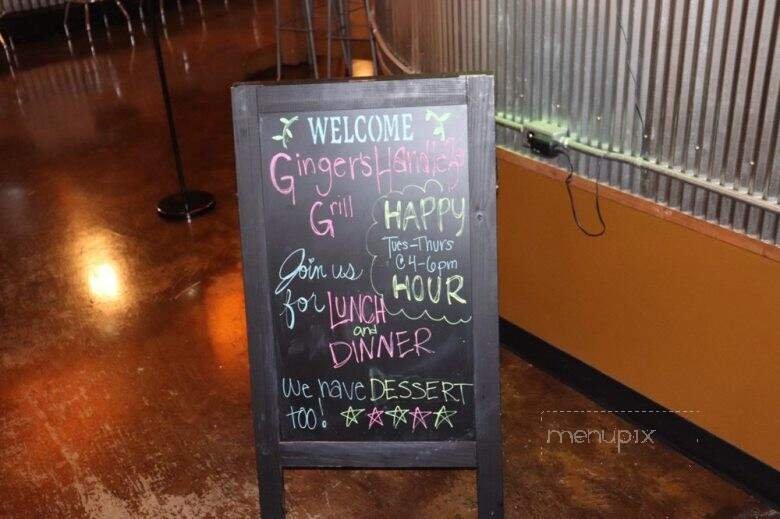 WELCOME
Ginger's Handleba
Grill
HAPPY
Tues-Thurs
@ 4-6pm
HOUR
Join us
for LUNCH
and
DINNER
We have DESSERT
too!
menupix